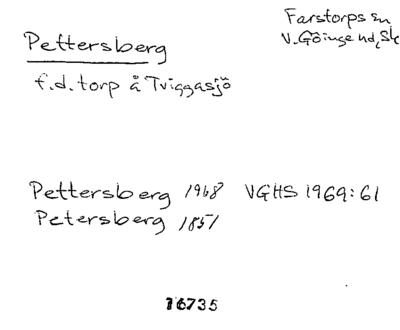 Pettersberg
Farstorps sn
V. Göinge hd, Sk
f.d. torp å Tviggasjö
Pettersberg 1968 VGHS 1969:61
Petersberg 1851
16735